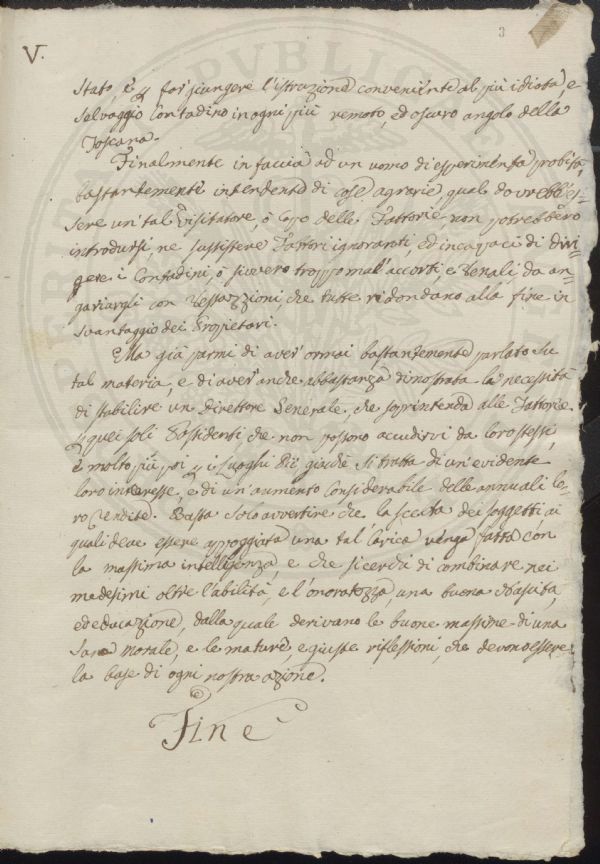 V.
3
Stato, e p far giungere l'istruzione conveniente al più idiota, e
selvaggio Contadino in ogni più remoto, ed oscuro angolo della
Toscana.
Finalmente in faccia ad un uomo di esperimentata probità,
bastantemente intendente di cose agrarie, qual dovrebb'es-
sere un tal Visitatore, o Capo delle Fattorie, non potrebbero
introdursi, ne sussistere Fattori ignoranti, ed incapaci di diri-
gere i Contadini, o sivvero troppo mal'accorti, e Venali, da an-
gariargli con Vessazzioni, che tutte ridondano alla fine in
svantaggio dei Propietari.
Ella già parmi di aver ormai bastantemente parlato su
tal materia, e di aver anche abbastanza dimostrata la necessità
di stabilire un Direttore Generale, che soprintenda alle Fattorie
p quei soli Possidenti che non possono accudirvi da loro stessi,
e molto più poi p i Luoghi Pii, giacchè si tratta di un'evidente
loro interesse, e di un'aumento considerabile delle annuali lo-
ro Rendite. Basta solo avvertire che la scelta dei soggetti ai
quali deve essere appoggiata una tal Carica venga fatta con
la massima intelligenza, e che si cerchi di combinare nei
medesimi oltre l'abilità, e l'onoratezza, una buona Nascita,
ed educazione, dalla quale derivano le buone massime di una
sana morale, e le mature, e giuste riflessioni, che devono essere
la base di ogni nostra azione.
Fine